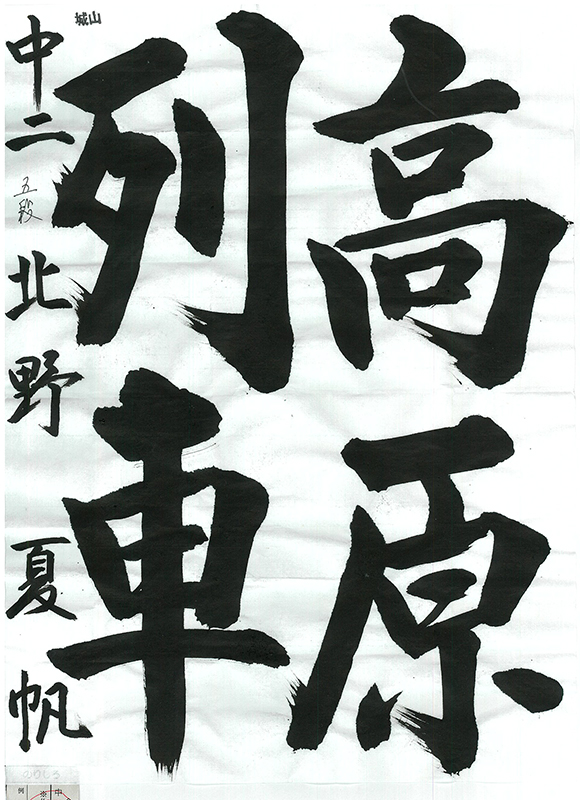 高原
列車
中二 五段 北野 夏帆
城山